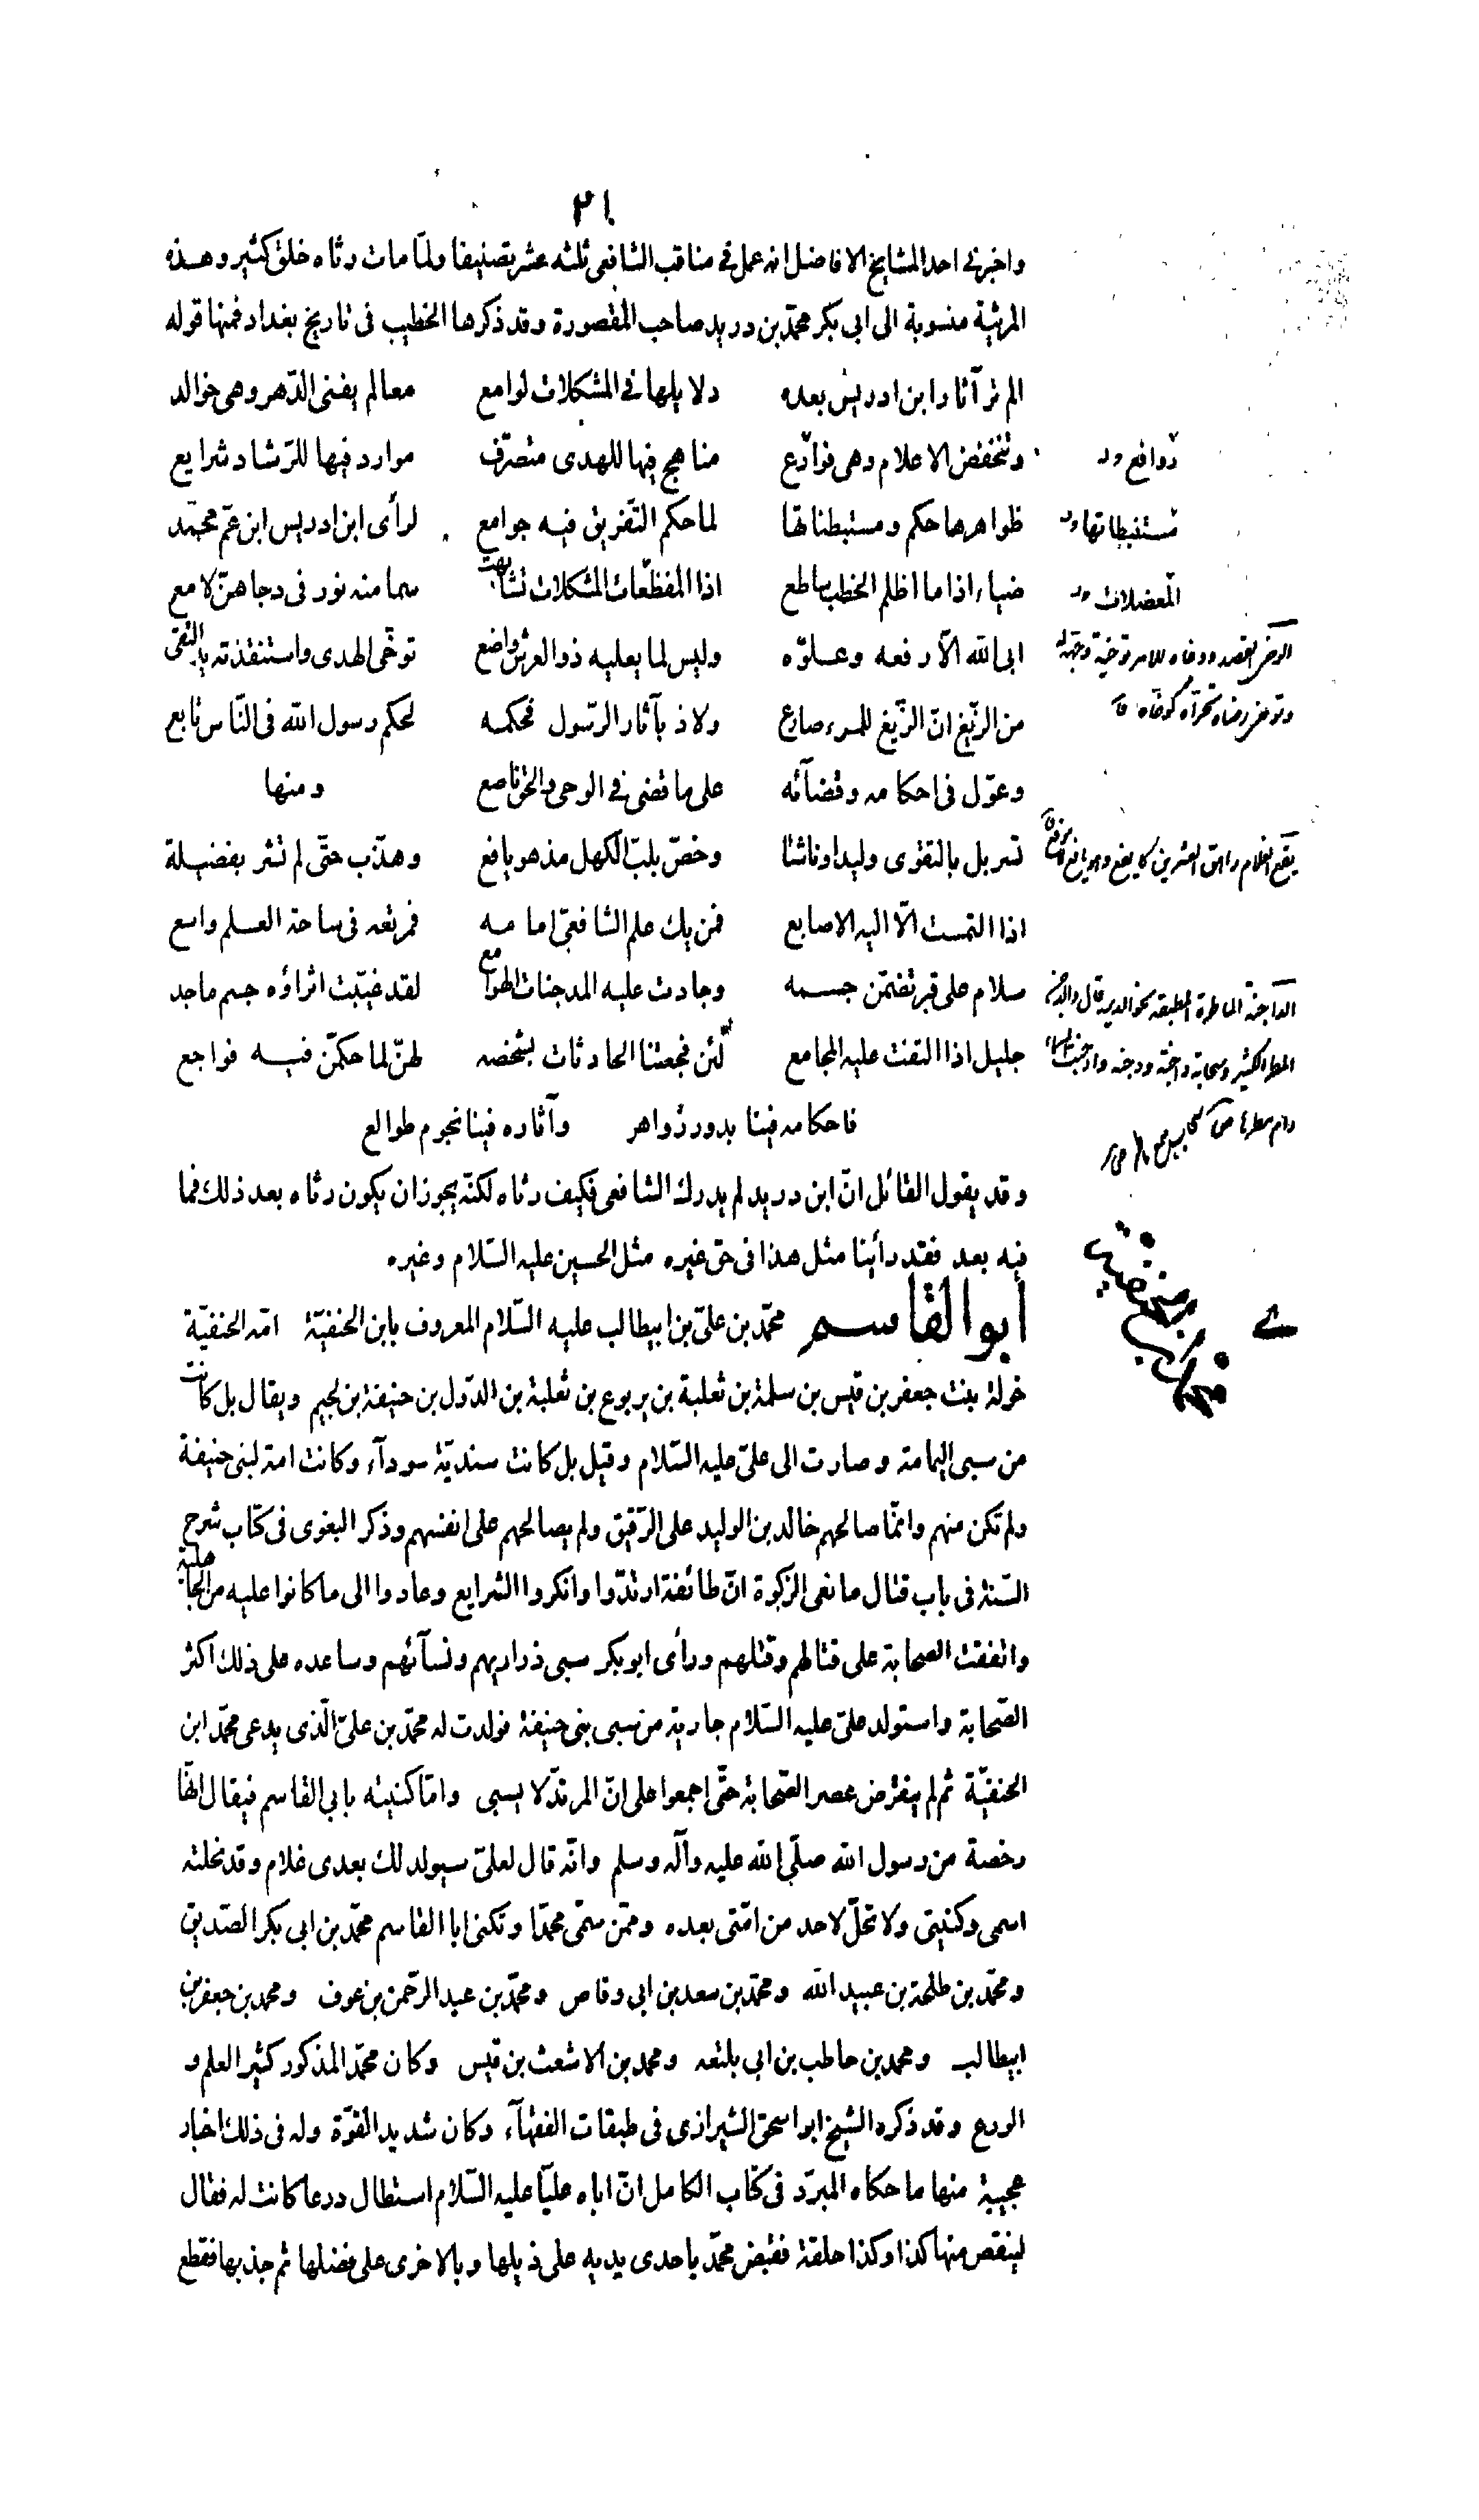 ٢١٠
واخبرنى احد المشايخ الافاضل انه عمل فى مناقب الشافعى ثلثه عشر تصنيفا ولمّا مات رثاه خلق كثير وهذه
المرثية منسوبة الى ابى بكر محمّد بن دريد صاحب المقصورة وقد ذكرها الخطيب فى تاريخ بغداد فمنها قوله
الم تر آثار ابن ادريس بعده دلايلها فى المشكلات لوامع معالم يفنى الدّهر وهى خوالد
وتنخفض الاعلام وهى فوارع مناهج فيها للهدى متصرّف موارد فيها للرّشاد شرايع
روافع
ظواهرها حكم ومستبطناتها لما حكم التّفريق فيه جوامع لرأى ابن ادريس ابن عمّ محمّد
مستنبطاتها
ضياء اذا ما اظلم الخطب ساطع اذا المفظّعات المشكلات تشابهت سما منه نور فى دجاهنّ لامع
المعضلات
ابى الله الّا رفعه وعلوّه وليس لما يعليه ذو العرش واضع توخّى الهدى واستنقذته يد التّقى
من الزّيغ انّ الزّيغ للمرء صارع ولاذ بآثار الرّسول فحكمه لحكم رسول الله فى النّاس تابع
وعوّل فى احكامه وقضآئه على ما قضى فى الوحى والحق ناصع ومنها
تسربل بالتقوى وليدا وناشئا وخصّ بلبّ الكهل مذ هو يافع وهذّب حتّى لم تشر بفضيلة
اذا التمست الّا اليه الاصابع فمن يك علم الشافعىّ امامه فمرتعه فى ساحة العلم واسع
سلام على قبر تضمّن جسمه وجادت عليه المدجنات الهوامع لقد غيّبت اثراؤه جسم ماجد
جليل اذا التفت عليه المجامع لئن فجعتنا الحادثات بشخصه لهنّ لما حكمّن فيه فواجع
فاحكامه فينا بدور زواهر وآثاره فينا نجوم طوالع
وقد يقول القائل انّ ابن دريد لم يدرك الشافعى فكيف رثاه لكنّه يجوز ان يكون رثاه بعد ذلك فما
فيه بعد فقد رأينا مثل هذا فى حق غيره مثل الحسين عليه السّلام وغيره
أبو القاسم محمّد بن علىّ بن ابيطالب عليه السّلام المعروف بابن الحنفيّة امّه الحنفيّة
محمد بن الحنفية
خولة بنت جعفر بن قيس بن سلمة بن ثعلبة بن يربوع بن ثعلبة بن الدّول بن حنيفة بن لجيم ويقال بل كانت
من سبى اليمامة وصارت الى علىّ عليه السّلام وقيل بل كانت سنديّة سودآء وكانت امة لبنى حنيفة
ولم تكن منهم وانّما صالحهم خالد بن الوليد على الرّقيق ولم يصالحهم على انفسهم وذكر البغوى فى كتاب شرح
السّنة فى باب قتال مانعى الزكوة انّ طائفة ارتدّوا وانكروا الشرايع وعادوا الى ما كانوا عليه من الجاهلية
واتفقت الصحابة على قتالهم وقتلهم ورأى ابو بكر سبى ذراريهم ونسآئهم وساعده على ذلك اكثر
الصّحابة واستولد علىّ عليه السّلام جارية من سبى بنى حنيفة فولدت له محمّد بن علىّ الّذى يدعى محمّد ابن
الحنفيّة ثم لم ينقرض عصر الصّحابة حتّى اجمعوا على انّ المرتدّ لا يسبى وامّا كنيته بابى القاسم فيقال انّها
رخصة من رسول الله صلّى الله عليه وآله وسلم وانّه قال لعلىّ سيولد لك بعدى غلام وقد نحلته
اسمى وكنيتى ولا تحلّ لاحد من امّتى بعده وممّن سمّى محمّدا وتكنى ابا القاسم محمّد بن ابى بكر الصّديق
ومحمّد بن طلحة بن عبيد الله ومحمّد بن سعد بن ابى وقاص ومحمّد بن عبد الرّحمن بن عوف ومحمد بن جعفر بن
ابيطالب ومحمد بن حاطب بن ابى بلتعه ومحمد بن الاشعث بن قيس وكان محمّد المذكور كثير العلم و
الورع وقد ذكره الشيخ ابو اسحق الشيرازى فى طبقات الفقهآء وكان شديد القوّة وله فى ذلك اخبار
عجيبة منها ما حكاه المبرّد فى كتاب الكامل انّ اباه عليّا عليه السّلام استطال درعا كانت له فقال
لينقص منها كذا وكذا حلقة فقبض محمّد باحدى يديه على ذيلها وبالاخرى على فضلها ثم جذبها فقطع